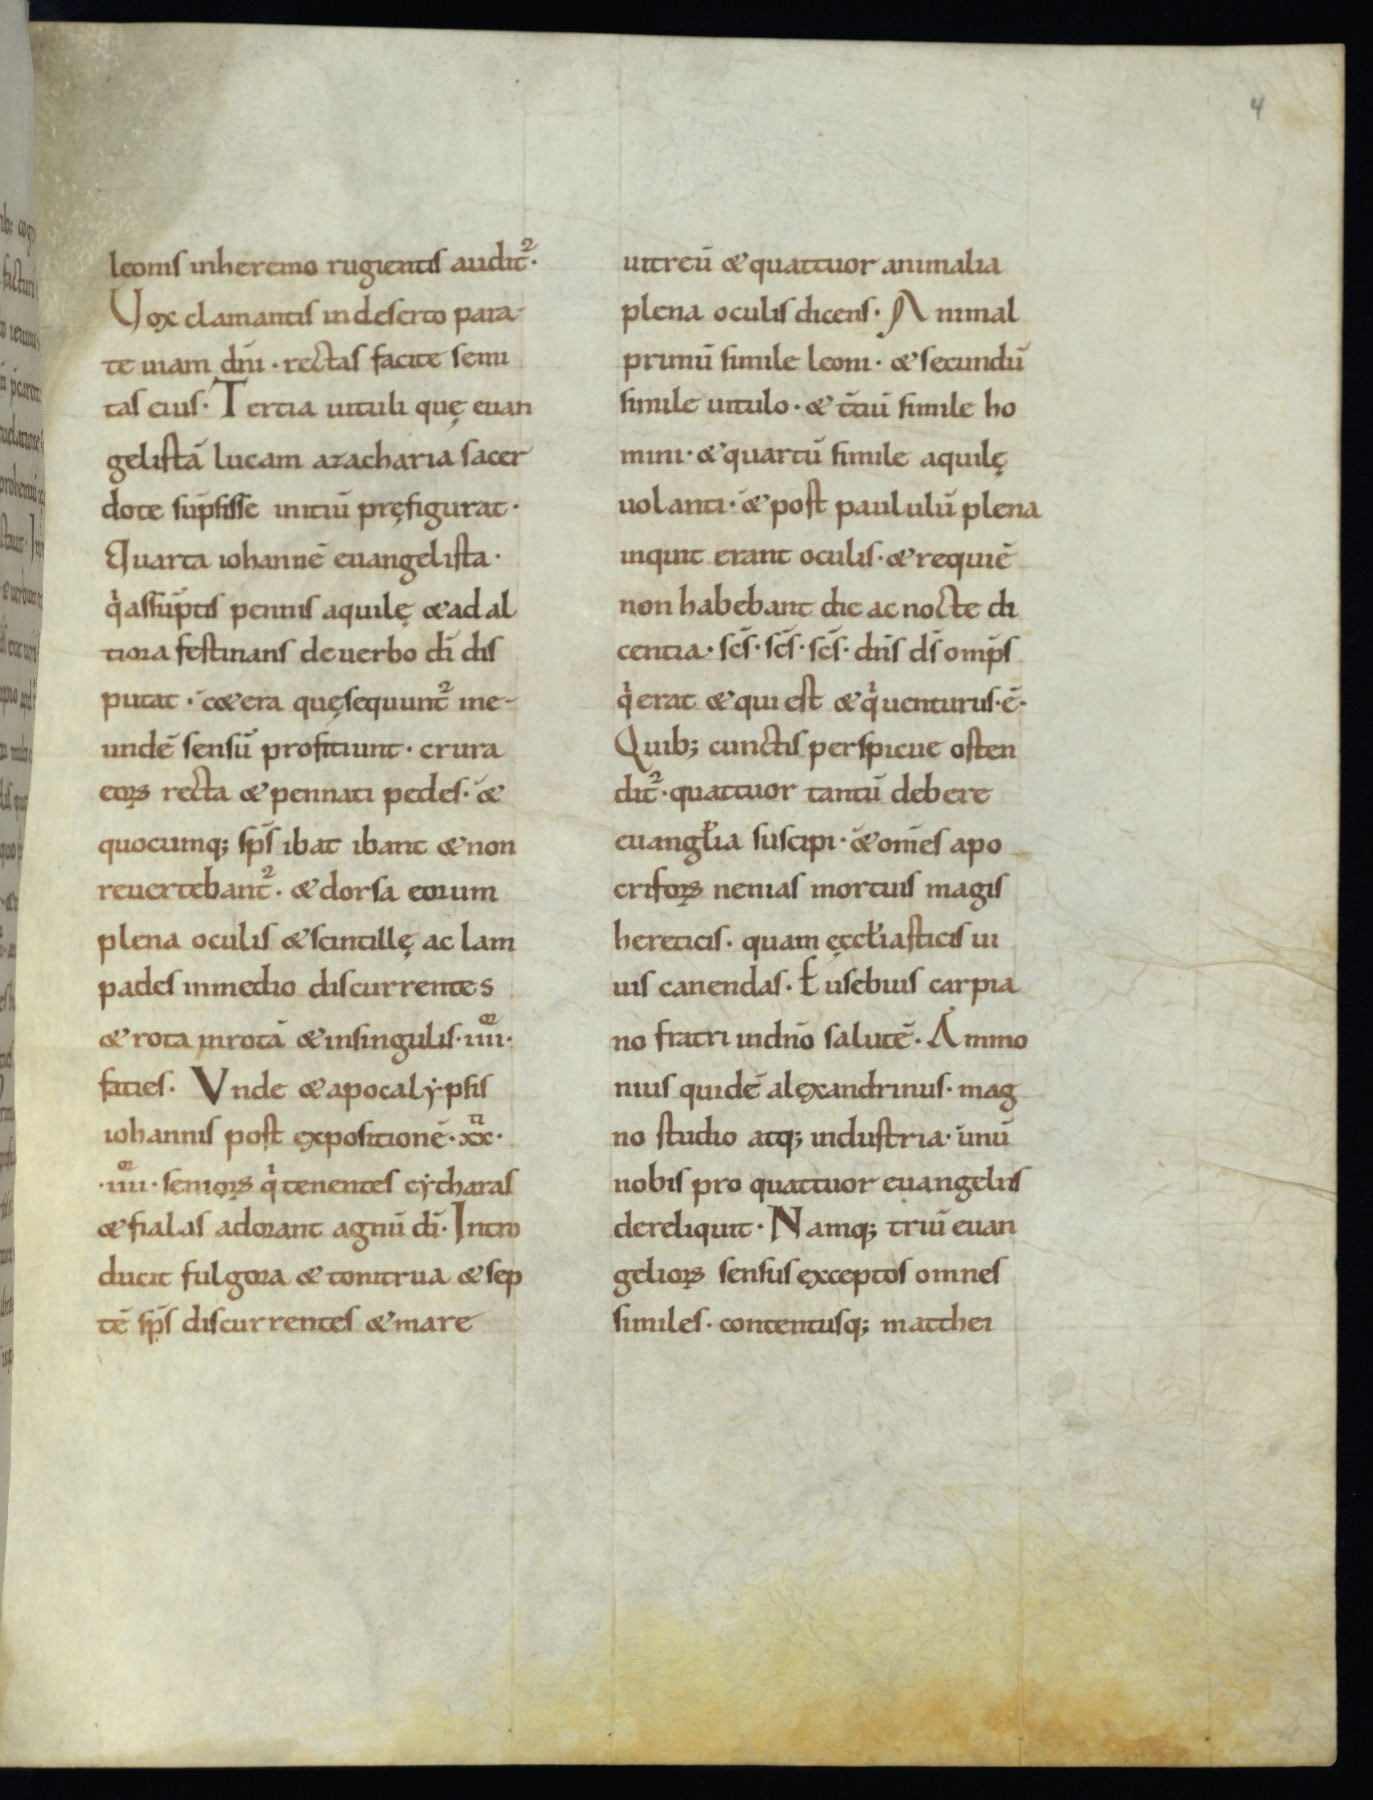 4
leonis inheremo rugientis audit᷒·
Uox clamantis indeserto para-
te uiam dn̄i · rectas facite semi
tas eius· Tertia uituli quę euan
gelistā lucam azacharia sacer
dote sūpsisse initiū pręfigurat·
Quarta iohannē euangelista·
qͥ assūptis pennis aquilę & ad al
tiora festinans deuerbo dī dis
putat · c&era quęsequunt᷒ ine-
undē sensū profitiunt· crura
eoꝝ recta & pennati pedes· &
quocumq; sp̄s ibat ibant & non
reuertebant᷒· & dorsa eorum
plena oculis & scintillę ac lam
pades inmedio discurrentes
& rota inrotā & insingulis·iiii·
faties· Vnde & apocalẏpsis
iohannis post expositionē·xx·
·iiii· senioꝝ qͥ tenentes cẏtharas
& fialas adorant agnū dī· Intro
ducit fulgora & tonitrua & sep
tē sp̄s discurrentes & mare
uitreū & quattuor animalia
plena oculis dicens· Animal
primū simile leoni· & secundū
simile uitulo· & t̄tiū simile ho
mini· & quartū simile aquilę
uolanti· & post paululū plena
inquit erant oculis· & requiē
non habebant die ac nocte di
centia· sc̄s· sc̄s· sc̄s· dn̄s ds̄ omp̄s
qͥ erat & qui est & qͥ uenturus·ē·
Quib; cunctis perspicue osten
dit᷒· quattuor tantū debere
euangl̄ia suscipi· & om̄es apo
crifoꝝ nenias mortuis magis
hereticis· quam ęccl̄iasticis ui
uis canendas· Eusebius carpia
no fratri indn̄o salutē· Ammo
nius quidē alexandrinus· mag
no studio atq; industria· unū
nobis pro quattuor euangeliis
dereliquit· Namq; triū euan
gelioꝝ sensus exceptos omnes
similes· contentusq; matthei